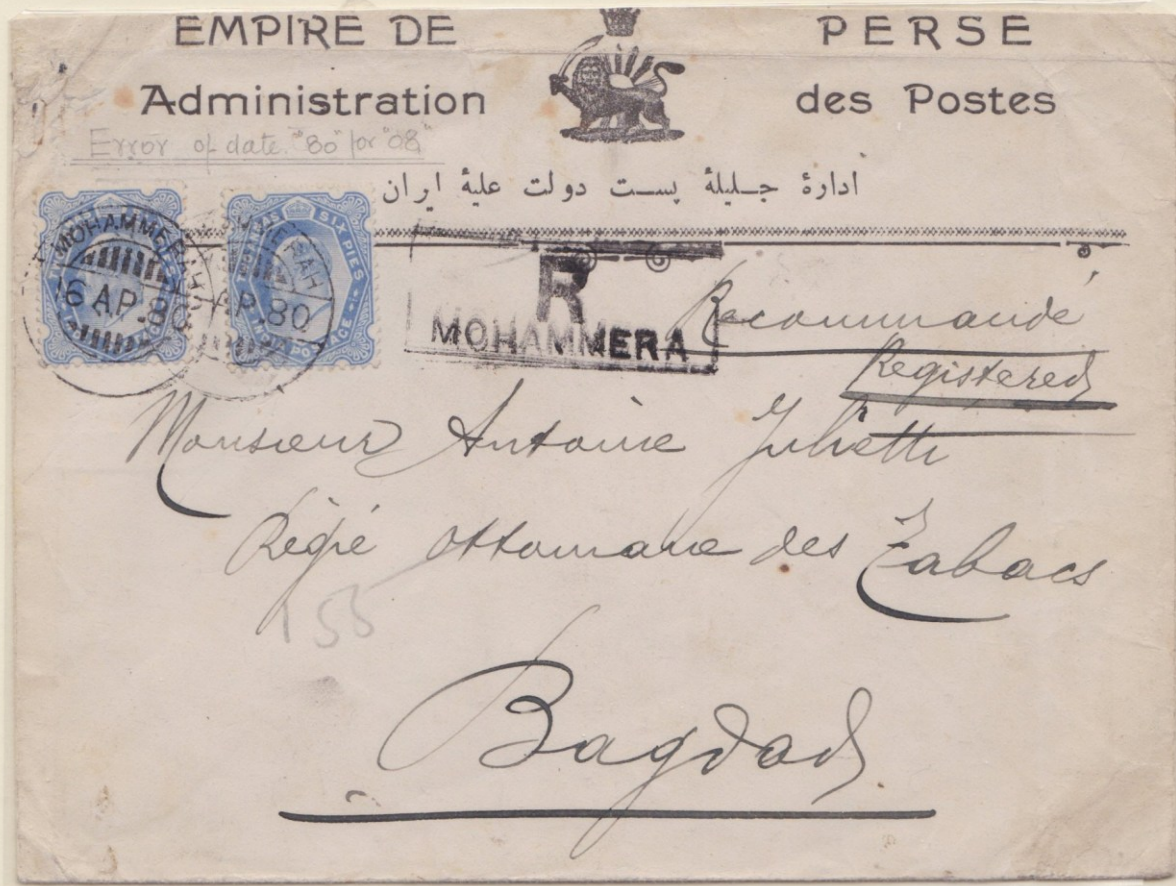 EMPIRE DE PERSE
Administration des Postes
Error of date "80" for "08"
ادارۀ جـلـیـلۀ پـسـت دولت علیۀ ایران
MOHAMMERAH
6 AP. 80
AP. 80
SIX PIES
R
MOHAMMERA
Recommandé
Registered
Monsieur Antoine Julietti
Régie Ottomane des Tabacs
155
Bagdad